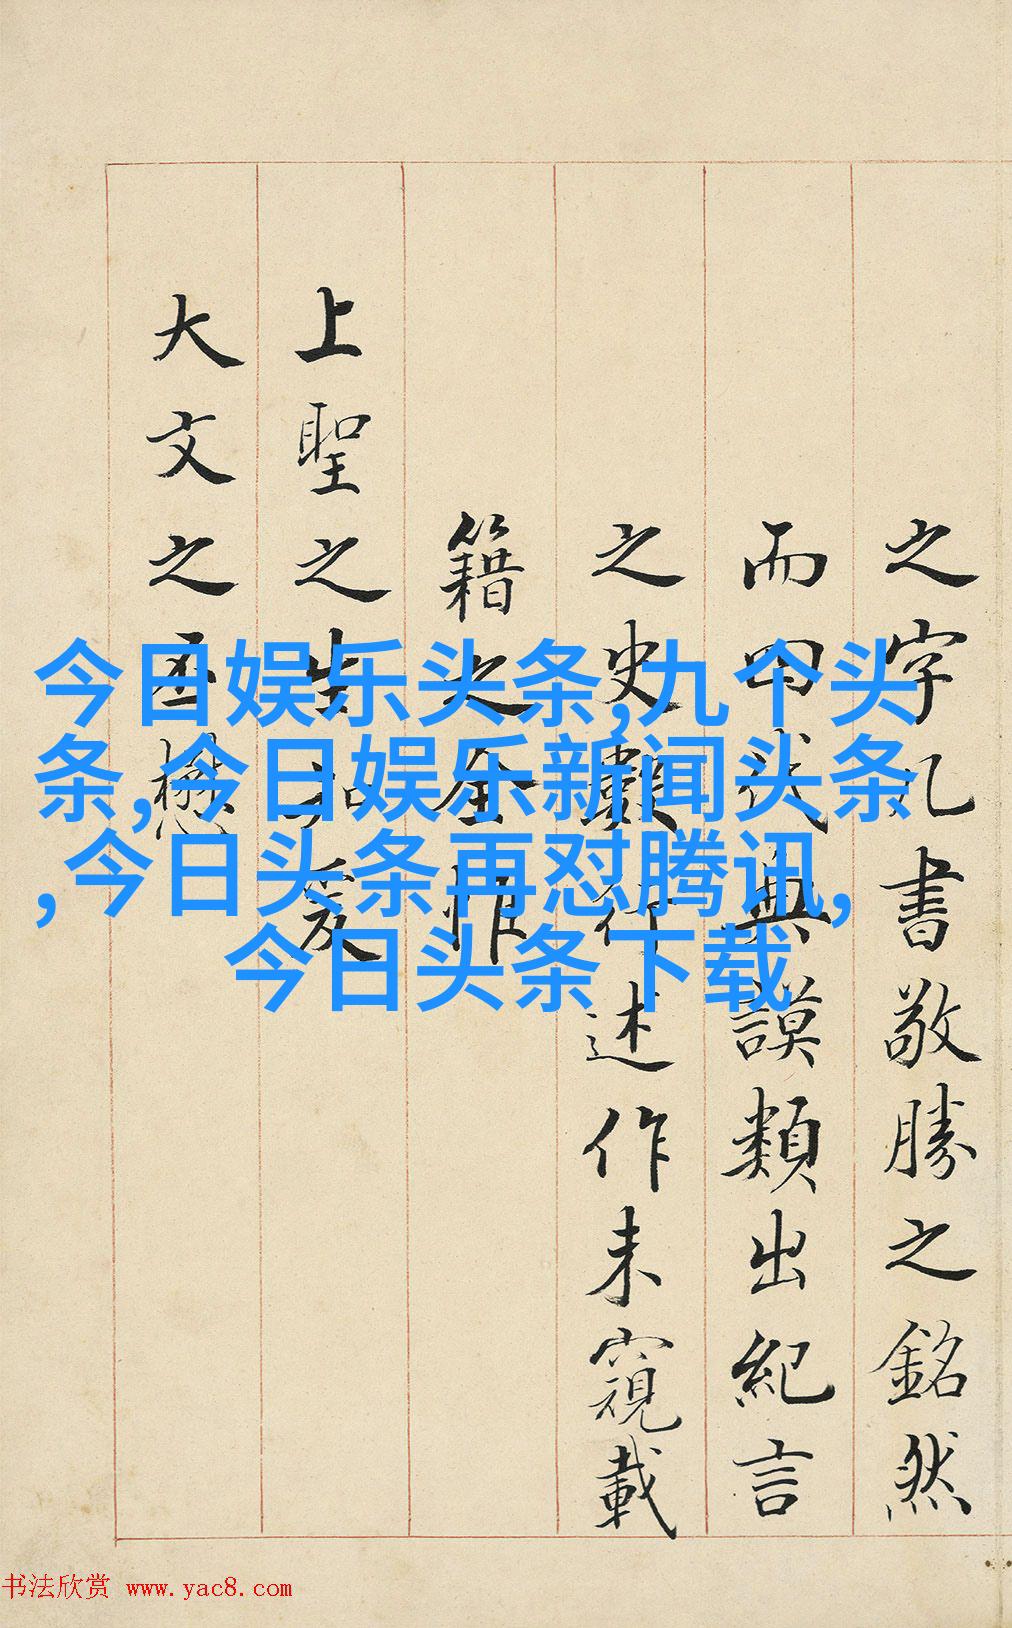 今日娱乐头条,九个头
条,今日娱乐新闻头条
,今日头条再怼腾讯,
今日头条下载
之字几書敬勝之銘然
而代典謨類出紀言
之史述作未窺載
籍之全惟
上聖之生知爰
大文之丕懋
书法欣赏 www.yac8.com